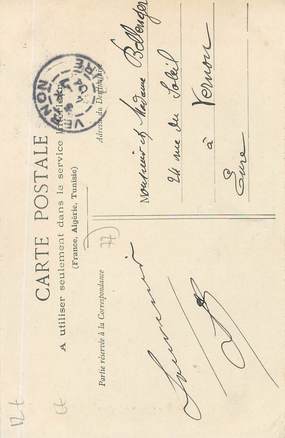 CARTE POSTALE
A utiliser seulement dans le service intérieur
(France, Algérie, Tunisie)
Partie réservée à la Correspondance
Adresse du Destinataire
VERNON
Souvenir
Monsieur et Madame Bellenger
24 rue du Soleil
à
Vernon
Eure
77